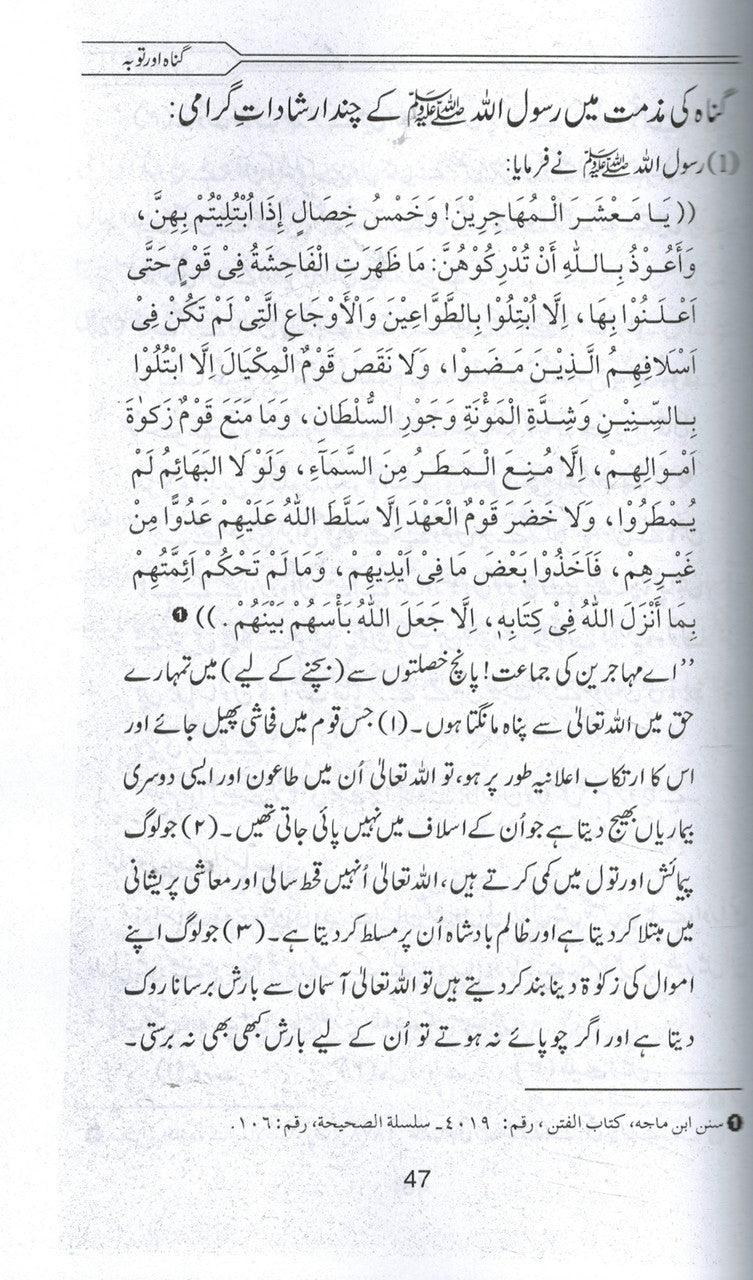 گناہ اور توبہ
گناہ کی مذمت میں رسول اللہ ﷺ کے چند ارشاداتِ گرامی:
(1) رسول اللہ ﷺ نے فرمایا:
(( یَا مَعْشَرَ الْمُهَاجِرِيْنَ! وَخَمْسُ خِصَالٍ إِذَا ابْتُلِيْتُمْ بِهِنَّ،
وَأَعُوْذُ بِاللّٰهِ أَنْ تُدْرِكُوْهُنَّ: مَا ظَهَرَتِ الْفَاحِشَةُ فِیْ قَوْمٍ حَتَّی
اَعْلَنُوْا بِهَا، اِلَّا ابْتُلُوْا بِالطَّوَاعِيْنَ وَالْأَوْجَاعِ الَّتِیْ لَمْ تَكُنْ فِیْ
اَسْلَافِهِمُ الَّذِيْنَ مَضَوْا، وَلَا نَقَصَ قَوْمٌ الْمِكْيَالَ اِلَّا ابْتُلُوْا
بِالسِّنِيْنِ وَشِدَّةِ الْمَؤْنَةِ وَجَوْرِ السُّلْطَانِ، وَمَا مَنَعَ قَوْمٌ زَكٰوةَ
اَمْوَالِهِمْ، اِلَّا مُنِعَ الْمَطَرُ مِنَ السَّمَآءِ، وَلَوْ لَا الْبَهَائِمُ لَمْ
يُمْطَرُوْا، وَلَا خَضَرَ قَوْمٌ الْعَهْدَ اِلَّا سَلَّطَ اللّٰهُ عَلَيْهِمْ عَدُوًّا مِنْ
غَيْرِهِمْ، فَاَخَذُوْا بَعْضَ مَا فِیْ اَيْدِيْهِمْ، وَمَا لَمْ تَحْكُمْ اَئِمَّتُهُمْ
بِمَا أَنْزَلَ اللّٰهُ فِیْ كِتَابِهٖ، اِلَّا جَعَلَ اللّٰهُ بَأْسَهُمْ بَيْنَهُمْ . )) ❶
”اے مہاجرین کی جماعت! پانچ خصلتوں سے (بچنے کے لیے) میں تمہارے
حق میں اللہ تعالیٰ سے پناہ مانگتا ہوں۔ (۱) جس قوم میں فحاشی پھیل جائے اور
اس کا ارتکاب اعلانیہ طور پر ہو، تو اللہ تعالیٰ اُن میں طاعون اور ایسی دوسری
بیماریاں بھیج دیتا ہے جو اُن کے اسلاف میں نہیں پائی جاتی تھیں۔ (۲) جو لوگ
پیمائش اور تول میں کمی کرتے ہیں، اللہ تعالیٰ اُنہیں قحط سالی اور معاشی پریشانی
میں مبتلا کر دیتا ہے اور ظالم بادشاہ اُن پر مسلط کر دیتا ہے۔ (۳) جو لوگ اپنے
اموال کی زکوٰۃ دینا بند کر دیتے ہیں تو اللہ تعالیٰ آسمان سے بارش برسانا روک
دیتا ہے اور اگر چوپائے نہ ہوتے تو اُن کے لیے بارش کبھی بھی نہ برستی۔
❶ سنن ابن ماجه، کتاب الفتن، رقم: ٤٠١٩۔ سلسلة الصحيحة، رقم: ١٠٦.
47